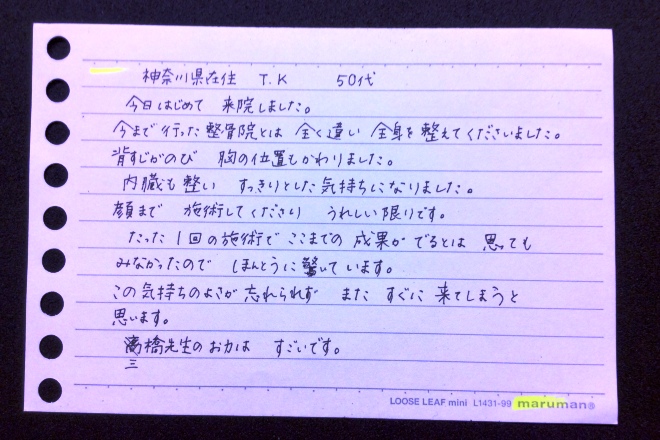 神奈川県在住 T.K 50代
今日はじめて 来院しました。
今まで行った整骨院とは 全く違い 全身を整えてくださいました。
背すじがのび 胸の位置もかわりました。
内臓も整い すっきりとした気持ちになりました。
顔まで 施術してくださり うれしい限りです。
たった1回の施術で ここまでの 成果が でるとは 思っても
みなかったので ほんとうに驚いています。
この気持ちのよさが 忘れられず また すぐに 来てしまうと
思います。
高橋先生のお力は すごいです。
三
LOOSE LEAF mini L1431-99 maruman®